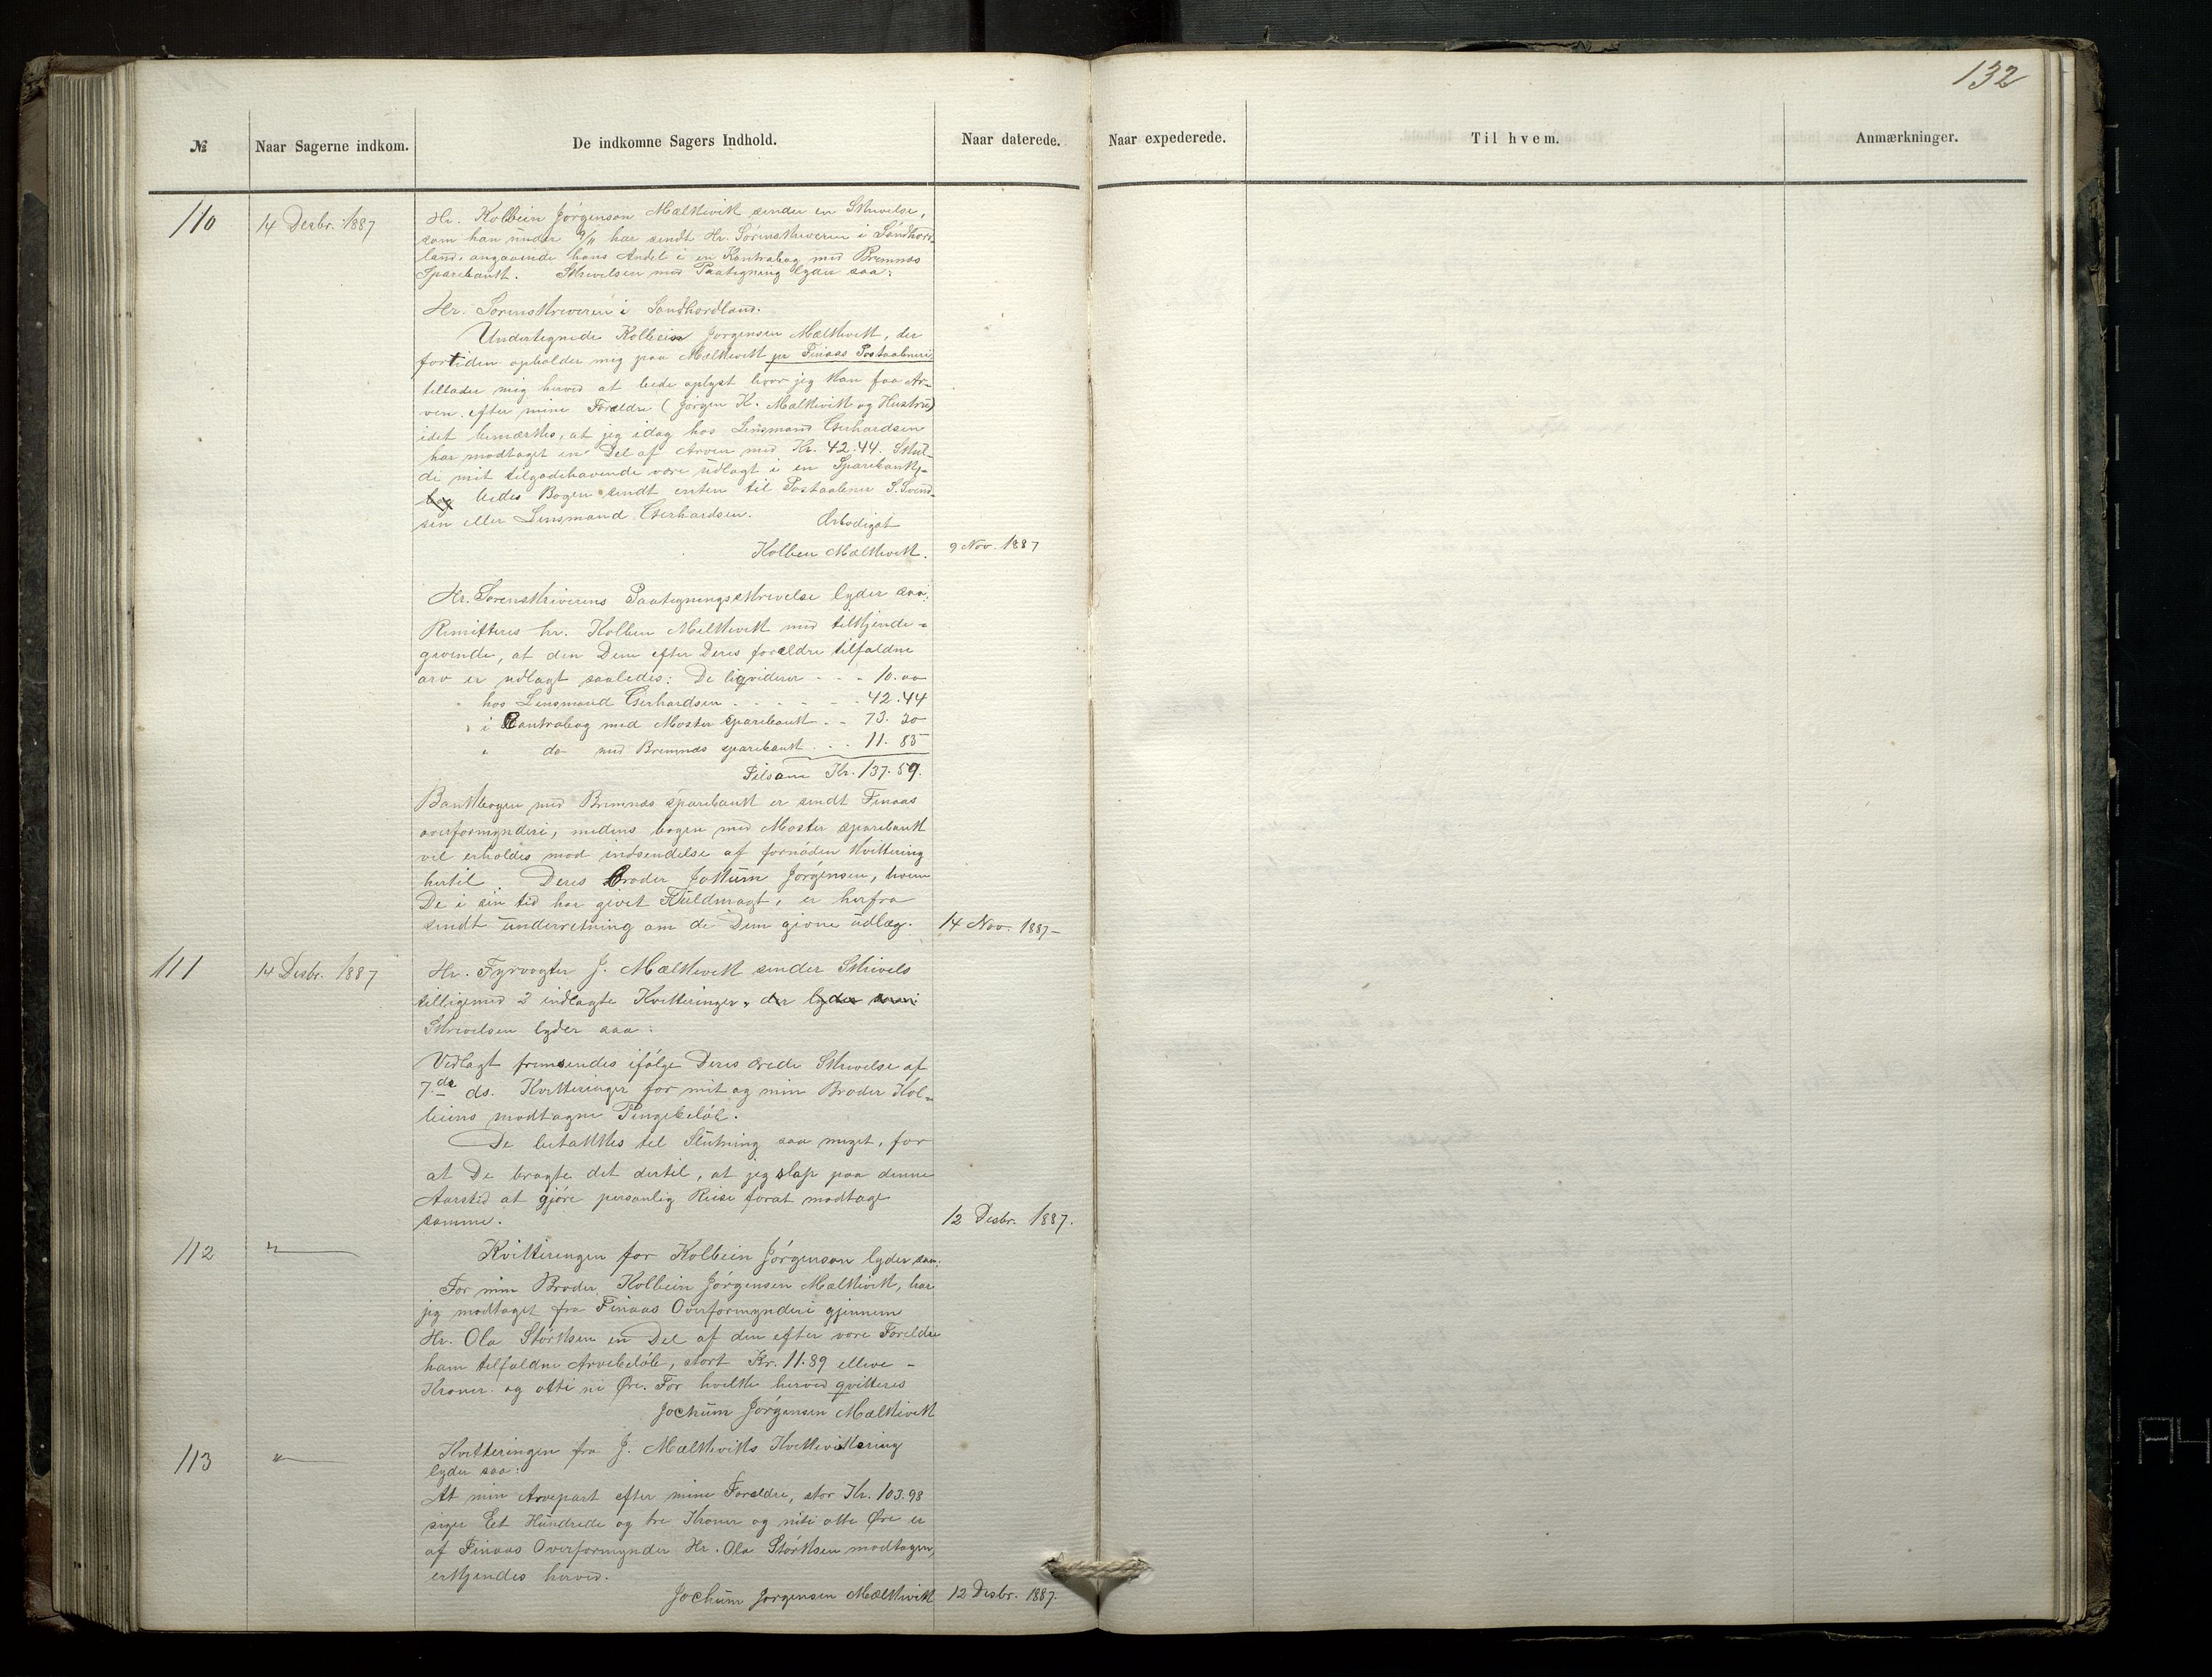 132
№
Naar Sagerne indkom.
De indkomne Sagers Indhold.
Naar daterede.
Naar expederede.
Til hvem.
Anmærkninger.
110
14 Desbr. 1887
Hr. Kolbein Jørgenson Mælkevik sender en Skrivelse,
som han under 9/11 har sendt Hr. Sørenskriveren i Søndhord-
land. angaaende hans Andel i en Kontrabog med Bremnes
Sparebank. Skrivelsen med Paategning lyder saa:
Hr. Sorenskriveren i Søndhordland.
Undertegnede Kolbein Jørgensen Mælkevik, der
fortiden opholder mig paa Mælkevik pr Finaas Postaabneri
tillader mig herved at bede oplyst hvor jeg kan faa Ar-
ven efter mine Forældre (Jørgen K. Mælkevik og Hustru)
idet bemærkes, at jeg idag hos Lensmand Gerhardsen
har modtaget en Del af Arven med Kr. 42.44. Skul-
de mit tilgodehavende være udlagt i en Sparebank-
bog bedes Bogen sendt enten til Postaabner S. Svend-
sen eller Lensmand Gerhardsen.
Ærbødigst
Kolben Mælkevik.
9 Nov. 1887
Hr. Sorenskriverens Paategningsskrivelse lyder saa:
Remitteres hr. Kolben Melkevik med tilkjende-
givende, at den Dem efter Deres forældre tilfaldne
arv er udlagt saaledes: De liqviderer - - - 10.00
" hos Lensmand Gerhardsen - - - - - 42.44
" i Contrabog med Moster sparebank - - 73.30
" do med Bremnes sparebank . . . 11.85
Tilsam Kr. 137.59.
Bankbogen med Bremnes sparebank er sendt Finaas
overformynderi, medens bogen med Moster sparebank
vil erholdes mod indsendelse af fornøden kvittering
hertil. Deres Broder Jokum Jørgensen, hvem
De i sin tid har givet Fuldmagt, er herfra
sendt underretning om de Dem givne udlæg.
14 Nov. 1887-
111
14 Desbr. 1887
Hr. Fyrvogter J. Mælkevik sender Skrivels
tilligemed 2 indlagte Kvitteringer, der lyder saa:
Skrivelsen lyder saa:
Vedlagt fremsendes ifølge Deres ærede Skrivelse af
7.de ds. Kvitteringer for mit og min Broder Kol-
beins modtagne Pengebeløb.
De betakkes til Slutning saa meget, for
at De bragte det dertil, at jeg slap paa denne
Aarstid at gjøre personlig Reise forat modtage
samme.
12 Desbr. 1887.
112
"
Kvitteringen for Kolbein Jørgenson lyder saa:
For min Broder Kolbein Jørgensen Mælkevik, har
jeg modtaget fra Finaas Overformynderi gjennem
Hr. Ola Størksen en Del af den efter vore Foreldre
ham tilfaldne Arvebeløb, stort Kr. 11.89 elleve -
Kroner og otti ni Øre. For hvilke herved qvitteres
Jochum Jørgensen Mælkevik
113
"
Kvitteringen fra J. Mælkeviks Kvittering
lyder saa:
At min Arvepart efter mine Forældre, stor Kr. 103.98
siger Et Hundrede og tre Kroner og niti otte Øre er
af Finaas Overformynder Hr. Ola Størksen modtagen,
erkjendes herved.
Jochum Jørgensen Mælkevik
12 Desbr. 1887.